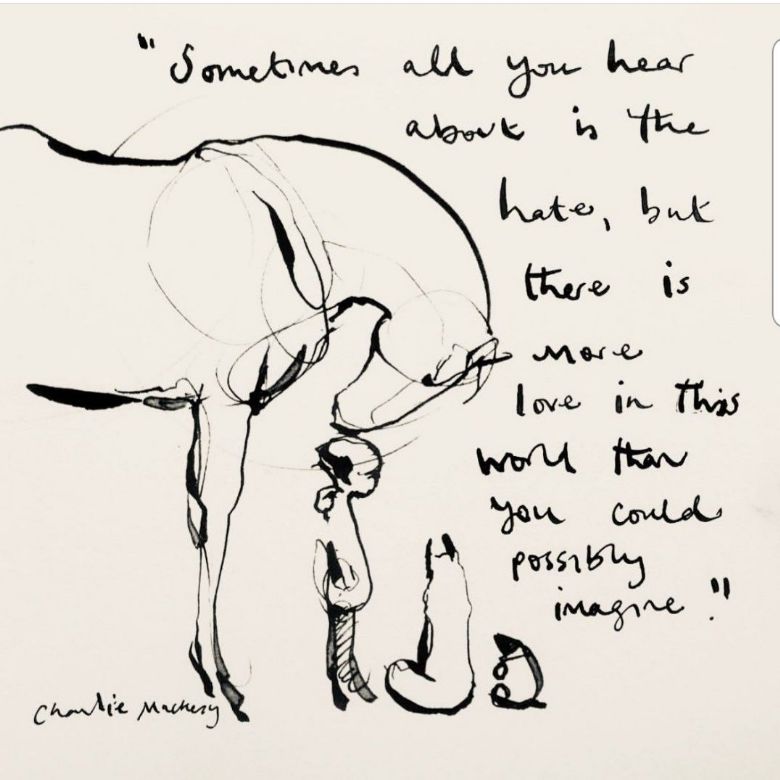 "Sometimes all you hear
about is the
hate, but
there is
more
love in this
world than
you could
possibly
imagine."
Charlie Mackesy